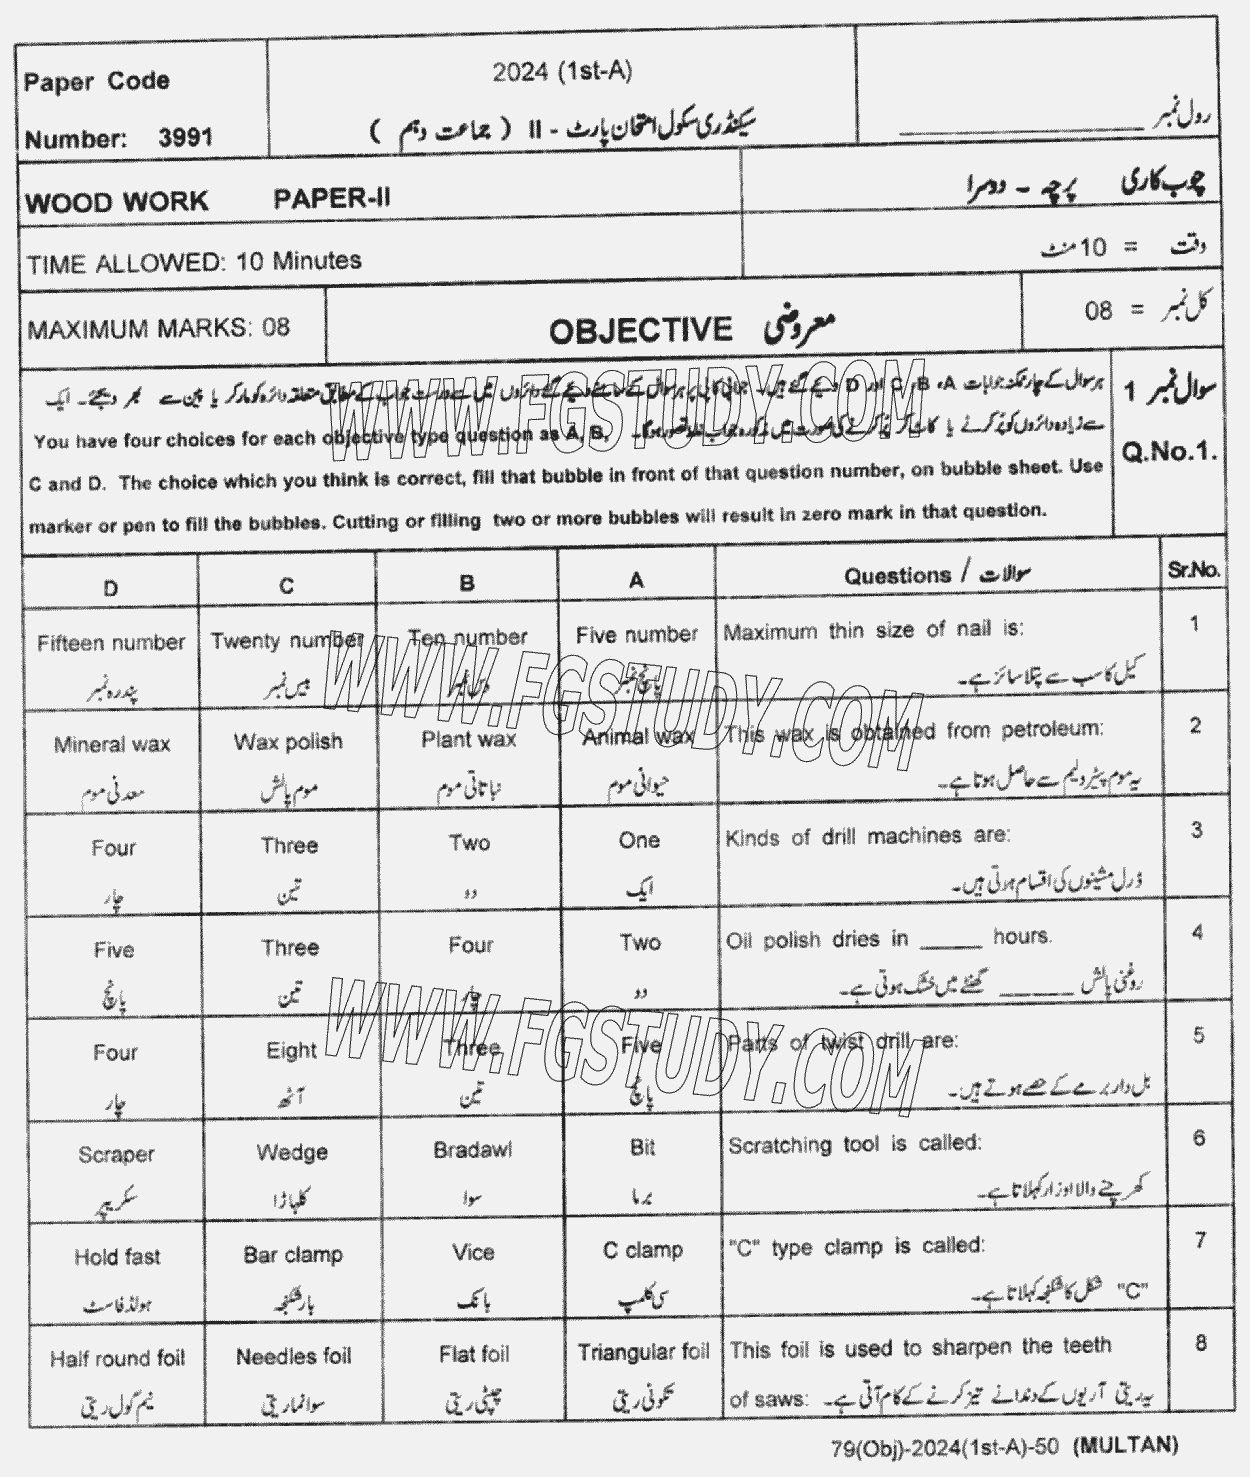 Paper Code
Number: 3991
2024 (1st-A)
سیکنڈری سکول امتحان پارٹ - II ( جماعت دہم )
رول نمبر ____________
WOOD WORK PAPER-II
چوب کاری پرچہ - دوسرا
TIME ALLOWED: 10 Minutes
وقت = 10 منٹ
MAXIMUM MARKS: 08
OBJECTIVE معروضی
کل نمبر = 08
سوال نمبر 1
Q.No.1.
ہر سوال کے چار ممکنہ جوابات A، B، C اور D دیئے گئے ہیں۔ جوابی کاپی پر ہر سوال کے سامنے دیئے گئے دائروں میں سے درست جواب کے مطابق متعلقہ دائرہ کو مارکر یا پین سے بھر دیجئے۔ ایک
سے زیادہ دائروں کو پُر کرنے یا کاٹ کر پُر کرنے کی صورت میں مذکورہ جواب غلط تصور ہوگا۔ You have four choices for each objective type question as A, B,
C and D. The choice which you think is correct, fill that bubble in front of that question number, on bubble sheet. Use
marker or pen to fill the bubbles. Cutting or filling two or more bubbles will result in zero mark in that question.
D C B A Questions / سوالات Sr.No.
Fifteen number Twenty number Ten number Five number Maximum thin size of nail is: 1
پندرہ نمبر بیس نمبر دس نمبر پانچ نمبر کیل کا سب سے پتلا سائز ہے۔
Mineral wax Wax polish Plant wax Animal wax This wax is obtained from petroleum: 2
معدنی موم موم پالش نباتاتی موم حیوانی موم یہ موم پیٹرولیم سے حاصل ہوتا ہے۔
Four Three Two One Kinds of drill machines are: 3
چار تین دو ایک ڈرل مشینوں کی اقسام ہوتی ہیں۔
Five Three Four Two Oil polish dries in _____ hours. 4
پانچ تین چار دو روغنی پالش ______ گھنٹے میں خشک ہوتی ہے۔
Four Eight Three Five Parts of twist drill are: 5
چار آٹھ تین پانچ بل دار برمے کے حصے ہوتے ہیں۔
Scraper Wedge Bradawl Bit Scratching tool is called: 6
سکریپر کلہاڑا سوا برما کھرچنے والا اوزار کہلاتا ہے۔
Hold fast Bar clamp Vice C clamp "C" type clamp is called: 7
ہولڈ فاسٹ بار شکنجہ بانک سی کلمپ "C" شکل کا شکنجہ کہلاتا ہے۔
Half round foil Needles foil Flat foil Triangular foil This foil is used to sharpen the teeth 8
نیم گول ریتی سوا نما ریتی چپٹی ریتی تکونی ریتی of saws: یہ ریتی آریوں کے دندانے تیز کرنے کے کام آتی ہے۔
79(Obj)-2024(1st-A)-50 (MULTAN)
WWW.FGSTUDY.COM
WWW.FGSTUDY.COM
WWW.FGSTUDY.COM